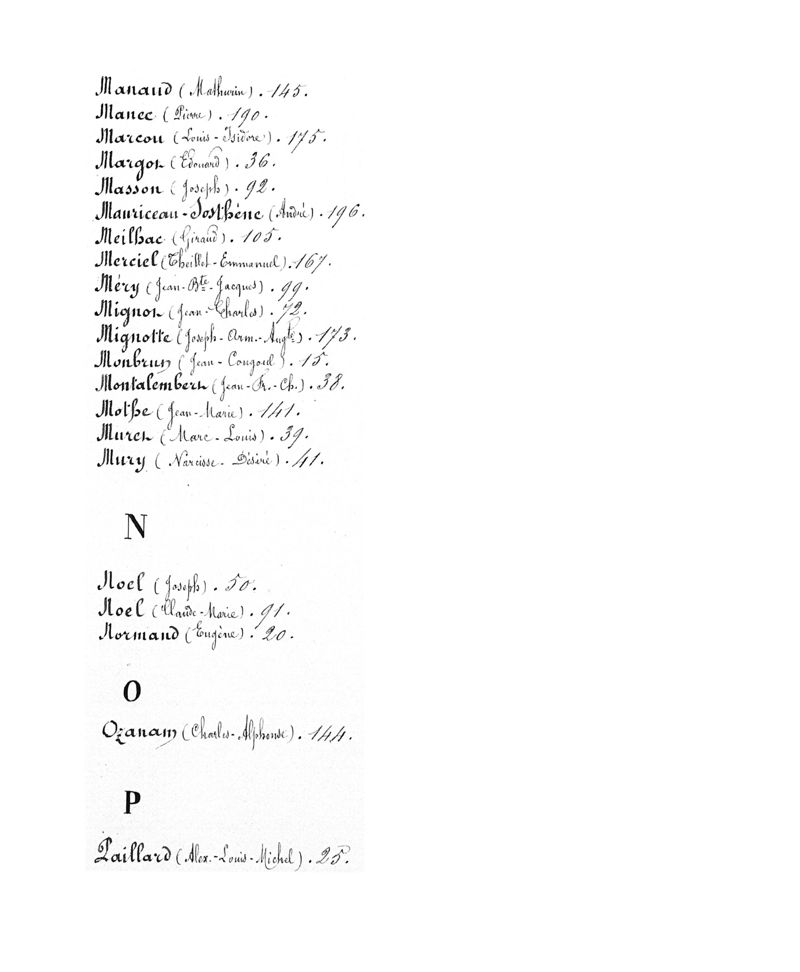 Manaud (Mathurin). 145.
Manec (Pierre). 190.
Marcou (Louis-Isidore). 175.
Margot (Edouard). 36.
Masson (Joseph). 92.
Mauriceau-Josthène (André). 196.
Meilhac (Giraud). 105.
Merciel (Theillot-Emmanuel). 167.
Méry (Jean-Bte-Jacques). 99.
Mignot (Jean-Charles). 72.
Mignotte (Joseph-Arm.-Augte). 173.
Monbrun (Jean-). 15.
Montalembert (Jean-Fr.-Ch.). 38.
Mothe (Jean-Marie). 141.
Muret (Marc-Louis). 39.
Mury (Narcisse-Désiré). 41.
N
Noel (Joseph). 50.
Noel (Claude-Marie). 91.
Normand (Eugène). 20.
O
Ozanam (Charles-Alphonse). 144.
P
Paillard (Alex.-Louis-Michel). 25.